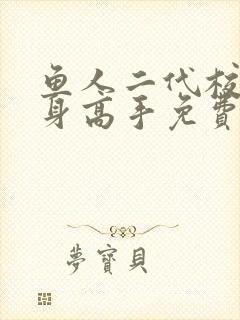 鱼人二代校
身高手免費
夢寶貝